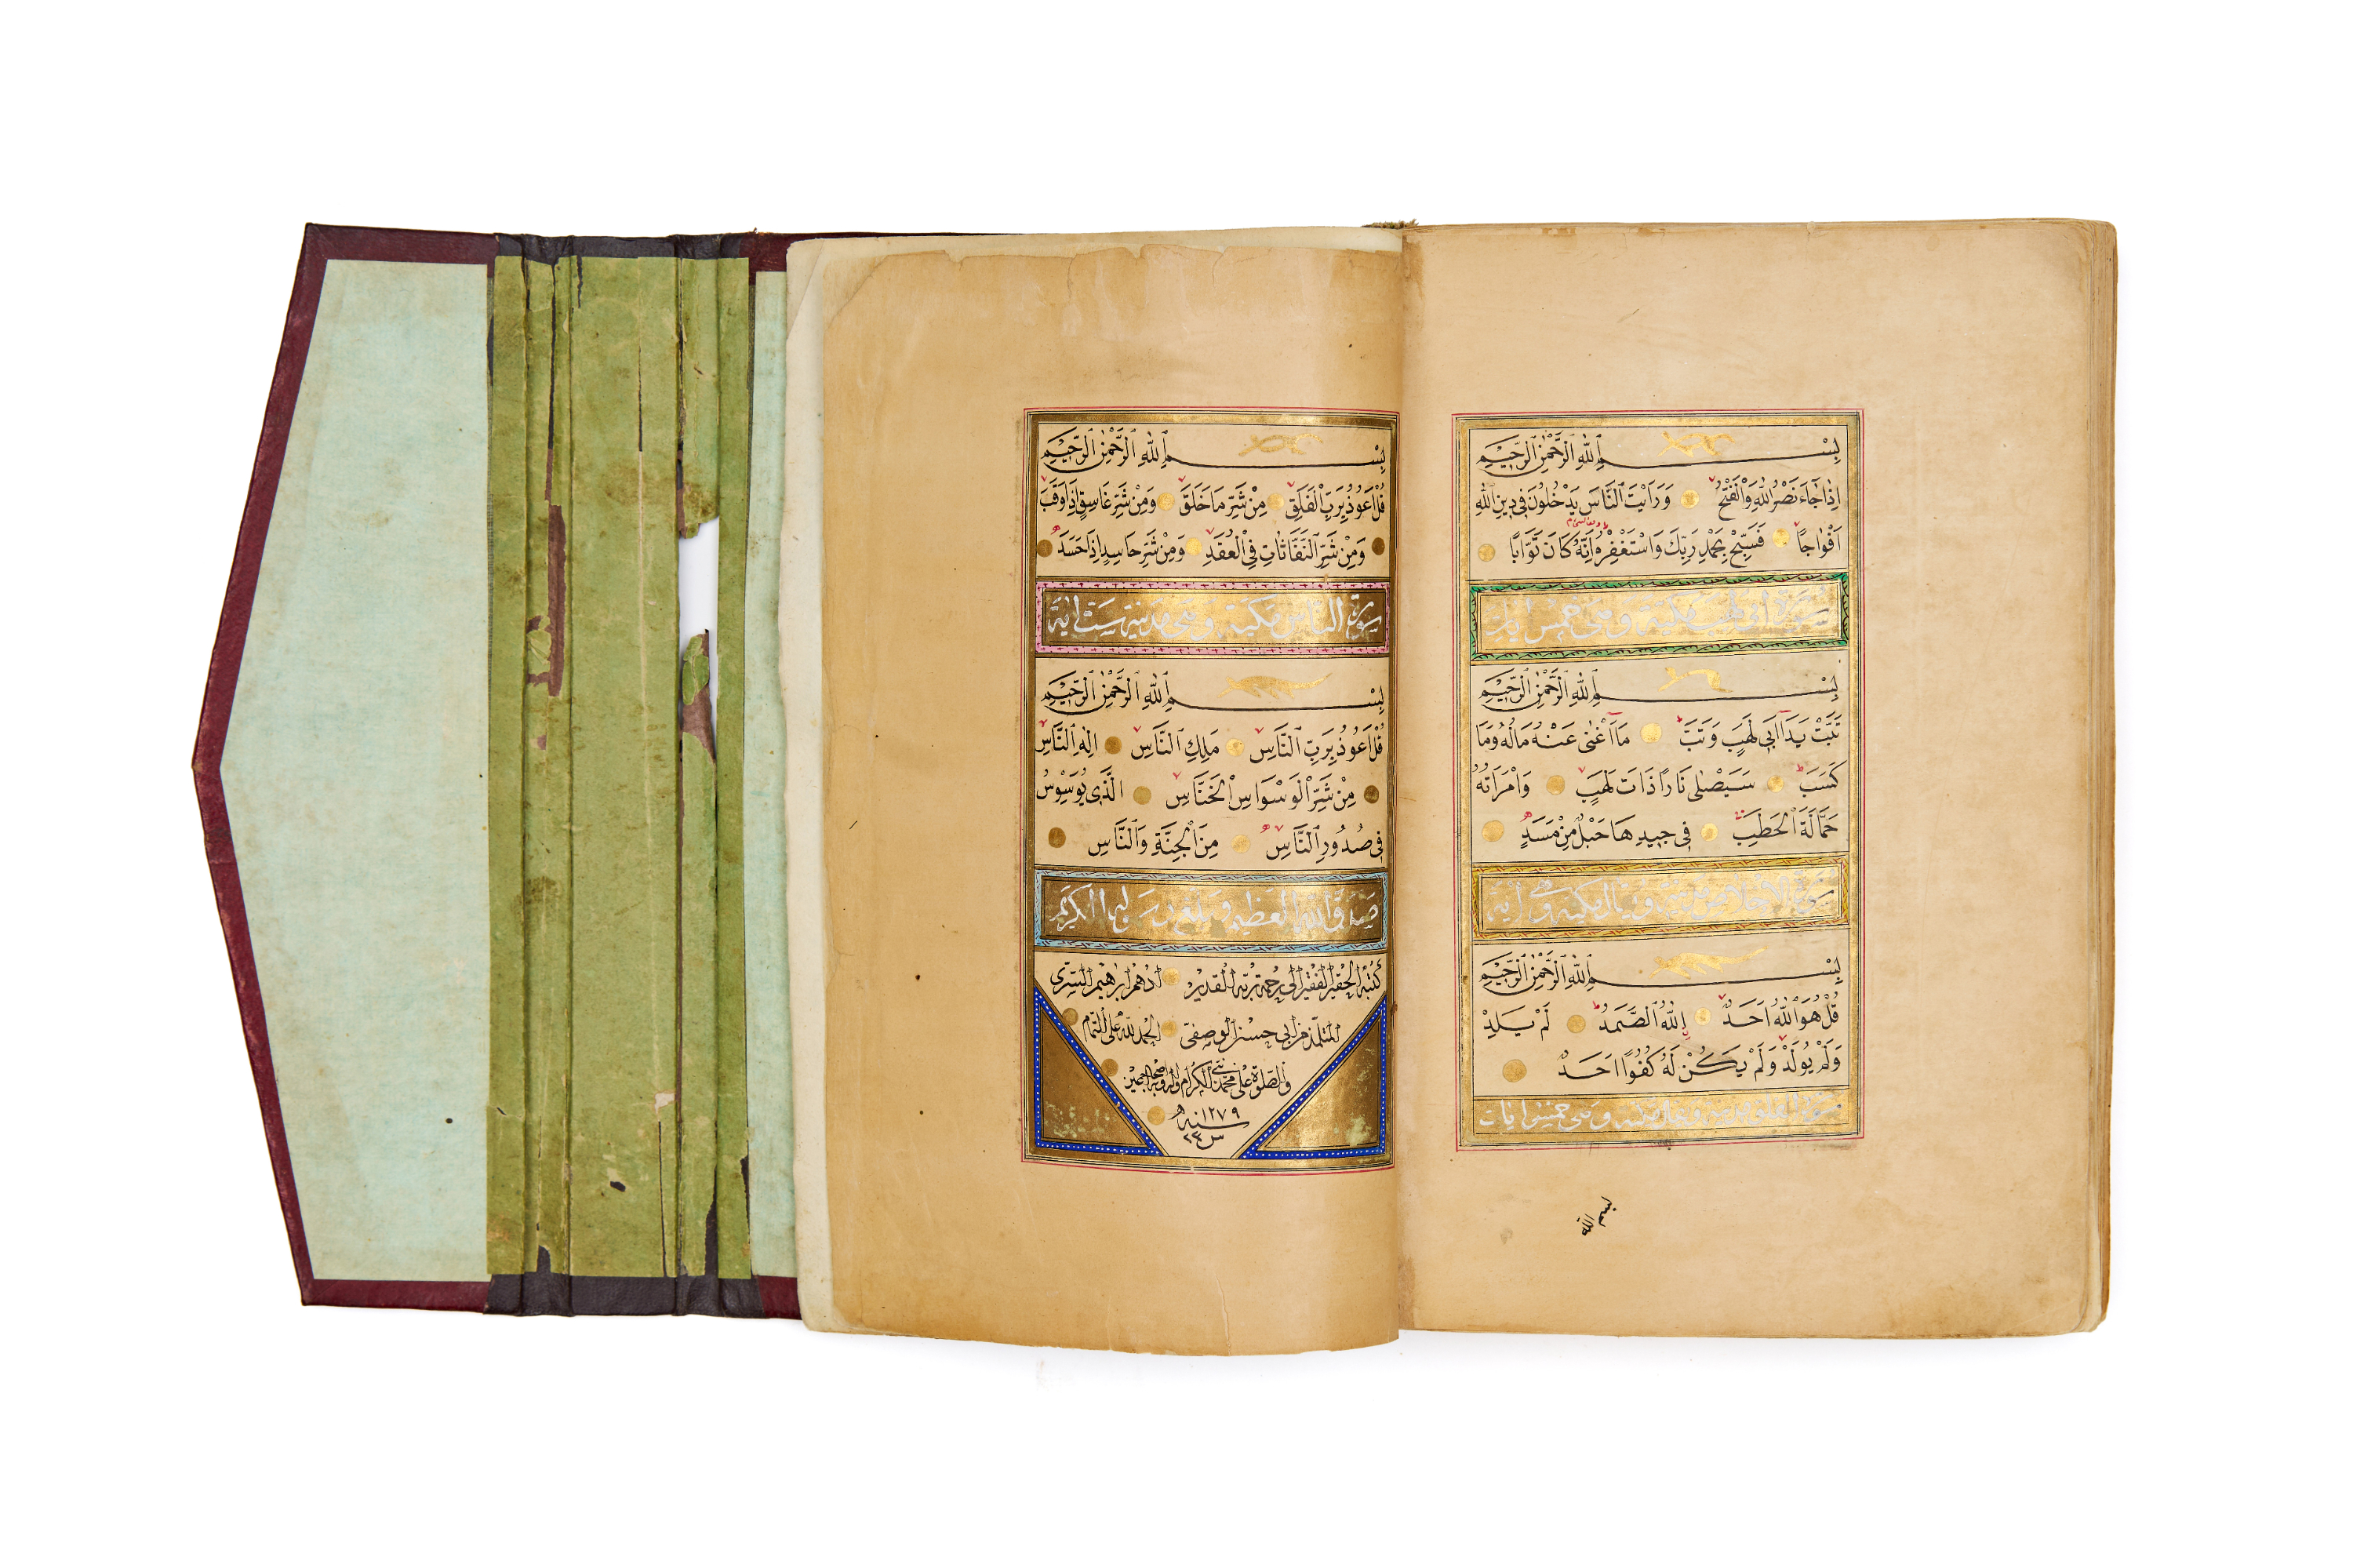 بِسْمِ اللهِ الرَّحْمٰنِ الرَّحِيمِ
اِذَا جَاءَ نَصْرُ اللهِ وَالْفَتْحُ وَرَاَيْتَ النَّاسَ يَدْخُلُونَ فِى دِينِ اللهِ
اَفْوَاجًا فَسَبِّحْ بِحَمْدِ رَبِّكَ وَاسْتَغْفِرْهُ اِنَّهُ كَانَ تَوَّابًا
سورة ابى لهب مكية وهى خمس ايات
بِسْمِ اللهِ الرَّحْمٰنِ الرَّحِيمِ
تَبَّتْ يَدَا اَبِى لَهَبٍ وَتَبَّ مَا اَغْنٰى عَنْهُ مَالُهُ وَمَا
كَسَبَ سَيَصْلٰى نَارًا ذَاتَ لَهَبٍ وَامْرَاَتُهُ
حَمَّالَةَ الْحَطَبِ فِى جِيدِهَا حَبْلٌ مِنْ مَسَدٍ
سورة الاخلاص
بِسْمِ اللهِ الرَّحْمٰنِ الرَّحِيمِ
قُلْ هُوَ اللهُ اَحَدٌ اَللهُ الصَّمَدُ لَمْ يَلِدْ
وَلَمْ يُولَدْ وَلَمْ يَكُنْ لَهُ كُفُوًا اَحَدٌ
سورة الفلق وهى خمس ايات
بسم الله
بِسْمِ اللهِ الرَّحْمٰنِ الرَّحِيمِ
قُلْ اَعُوذُ بِرَبِّ الْفَلَقِ مِنْ شَرِّ مَا خَلَقَ وَمِنْ شَرِّ غَاسِقٍ اِذَا وَقَبَ
وَمِنْ شَرِّ النَّفَّاثَاتِ فِى الْعُقَدِ وَمِنْ شَرِّ حَاسِدٍ اِذَا حَسَدَ
سورة الناس مكية وهى مدنية ست اية
بِسْمِ اللهِ الرَّحْمٰنِ الرَّحِيمِ
قُلْ اَعُوذُ بِرَبِّ النَّاسِ مَلِكِ النَّاسِ اِلٰهِ النَّاسِ
مِنْ شَرِّ الْوَسْوَاسِ الْخَنَّاسِ الَّذِى يُوَسْوِسُ
فِى صُدُورِ النَّاسِ مِنَ الْجِنَّةِ وَالنَّاسِ
صدق الله العظيم وبلغ رسوله الكريم
كتبه الحقير الفقير الى رحمة ربه القدير ادهم ابراهيم السرى
الحمد لله على التمام
والصلوة على محمد واله وصحبه اجمعين
سنه ١٢٧٩